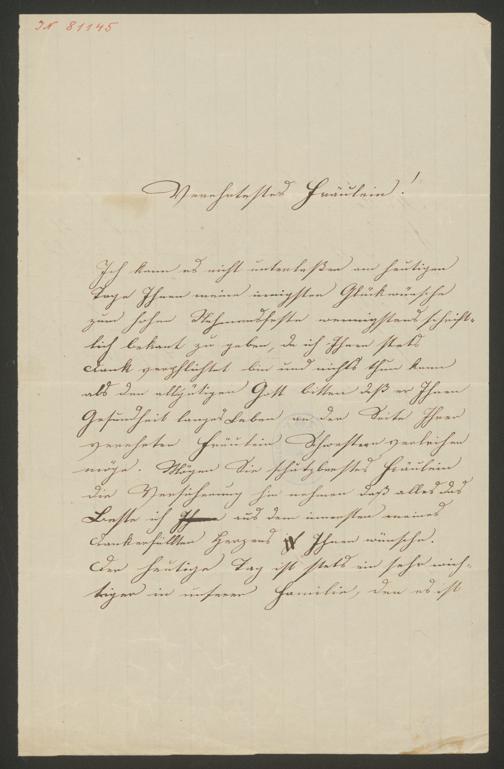 IN 81145
Verehrtestes Fräulein!
Ich kann es nicht unterlaßen am heutigen
Tage Ihnen meine innigsten Glükwünsche
zum hohen Nahmensfeste wenigstens schrift-
lich bekant zu geben, da ich Ihnen stets
Dank verpflichtet bin und nichts thun kann
als den allgütigen Gott bitten daß er Ihnen
Gesundheit langes Leben an der Seite Ihrer
verehrten Fräulein Schwestern verleihen
möge. Mögen Sie schätzbarstes Fräulein
die Versicherung hin nehmen daß alles das
Beste ich aus dem innersten meines
dankerfüllten Herzens Ihnen wünsche.
Der heutige Tag ist stets ein sehr wich-
tiger in unserer Familie, den es ist